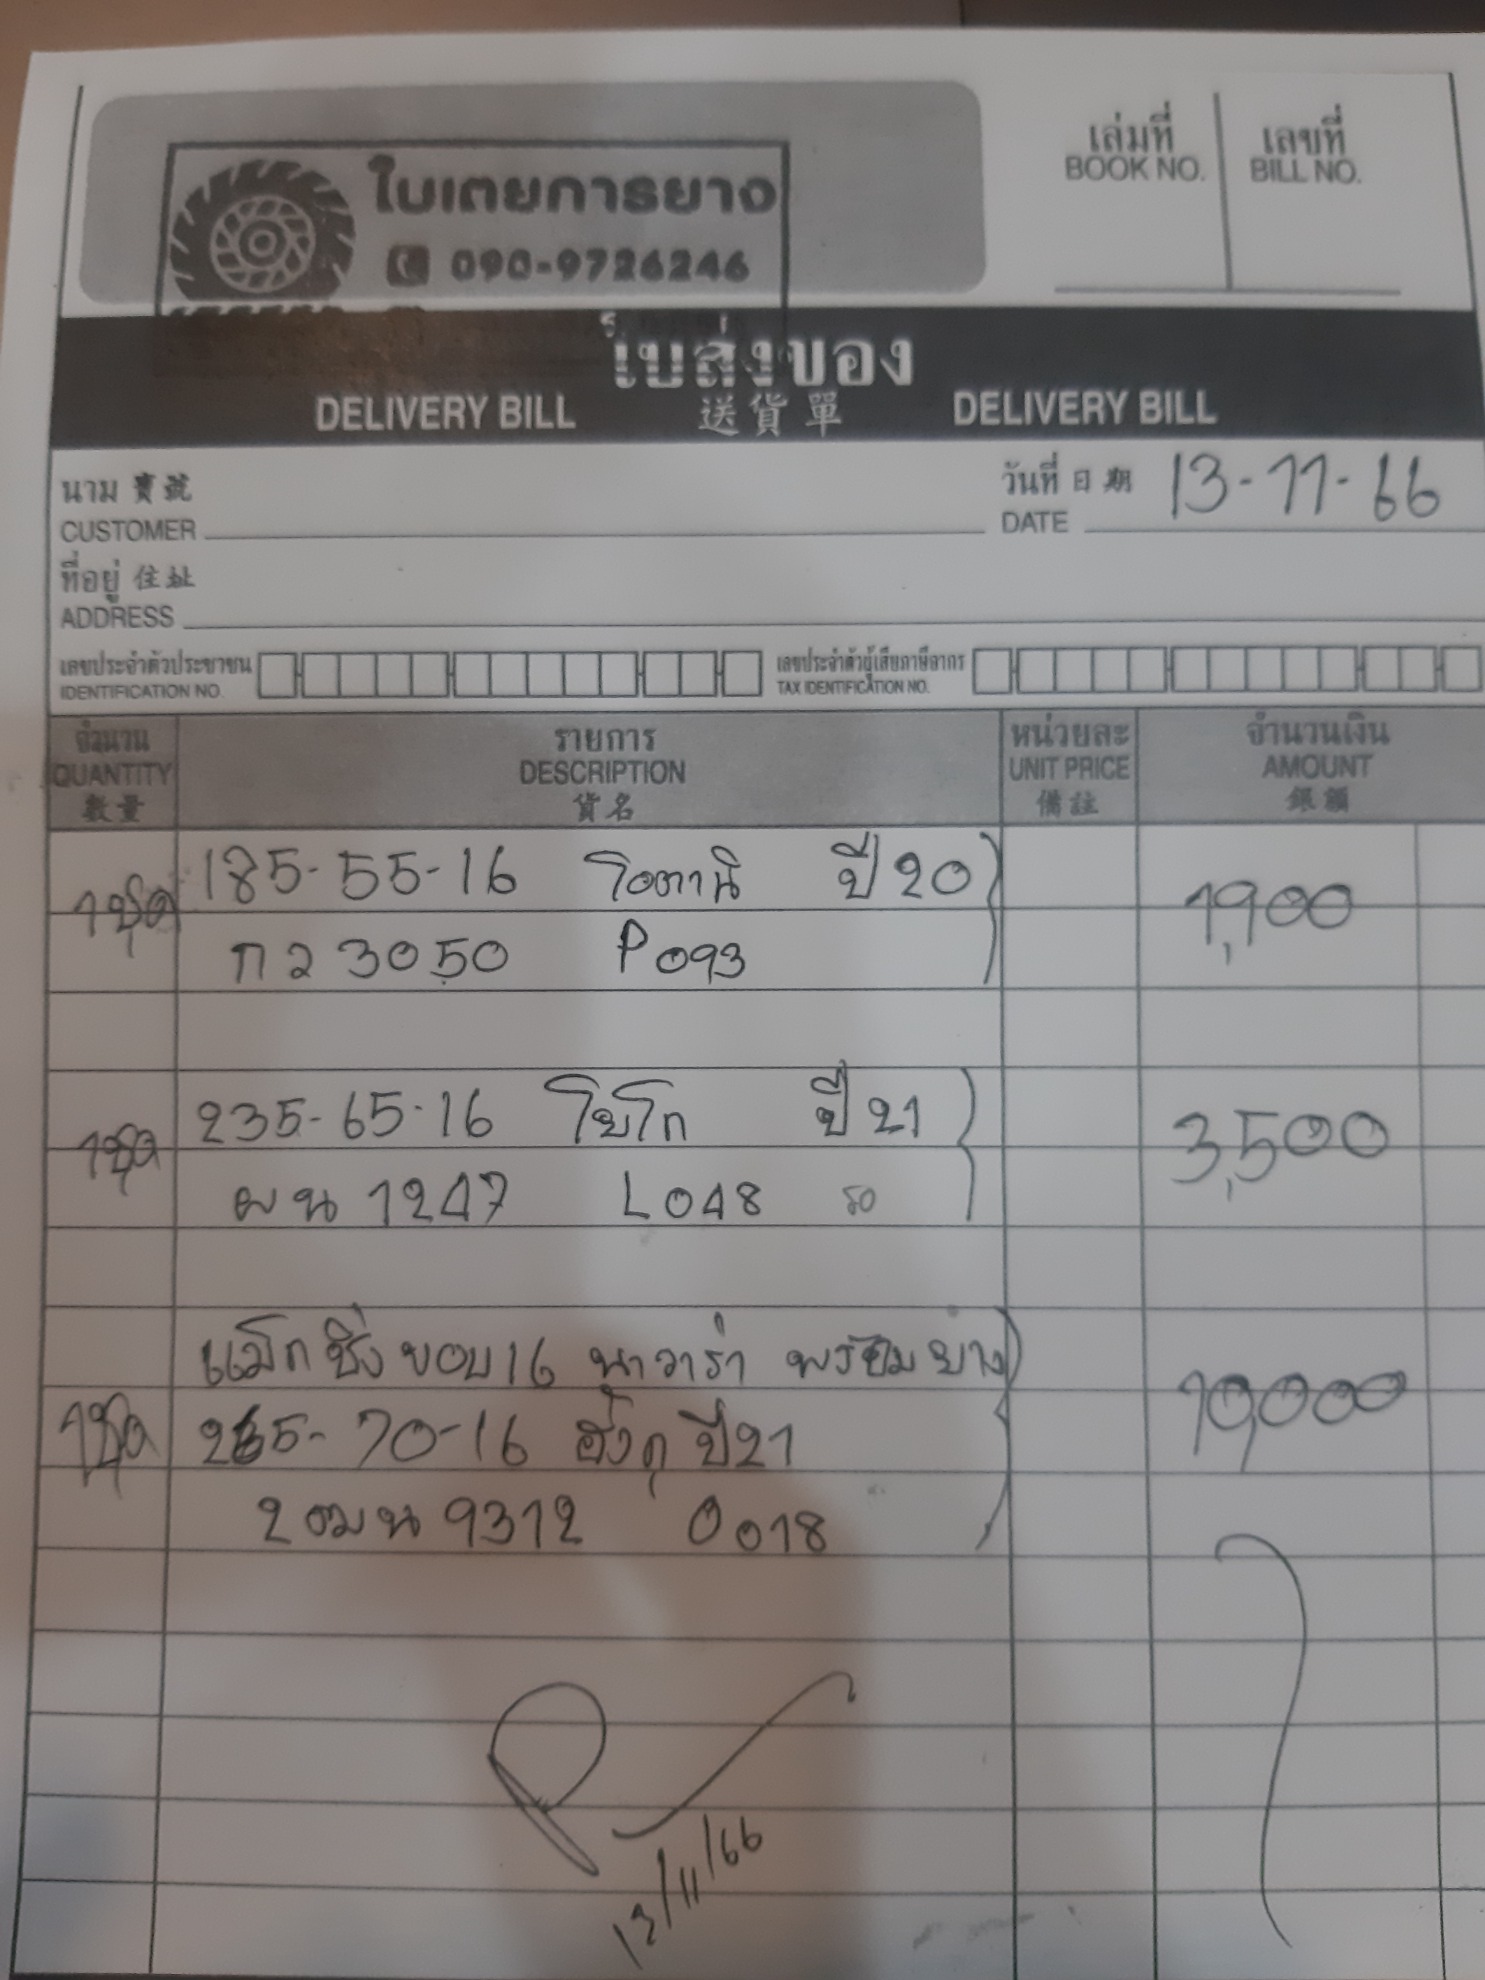 ใบเตยการยาง
090-9726246
เล่มที่
BOOK NO.
เลขที่
BILL NO.
ใบส่งของ
DELIVERY BILL 送貨單 DELIVERY BILL
นาม 寶號
CUSTOMER
วันที่ 日期 13-11-66
DATE
ที่อยู่ 住址
ADDRESS
เลขประจำตัวประชาชน
IDENTIFICATION NO.
เลขประจำตัวผู้เสียภาษีอากร
TAX IDENTIFICATION NO.
จำนวน รายการ หน่วยละ จำนวนเงิน
QUANTITY DESCRIPTION UNIT PRICE AMOUNT
數量 貨名 備註 銀額
1ชุด 185-55-16 โอตานิ ปี 20 1,900
กว 3050 P093
1ชุด 235-65-16 โยโก ปี 21 3,500
ผน 1247 L048 รถ
แม็กซิ่ง ขอบ 16 นาวาร่า พร้อมยาง
1ชุด 265-70-16 ฮั้งกุ ปี 21 10,000
2ฒน 9312 O018
13/11/66